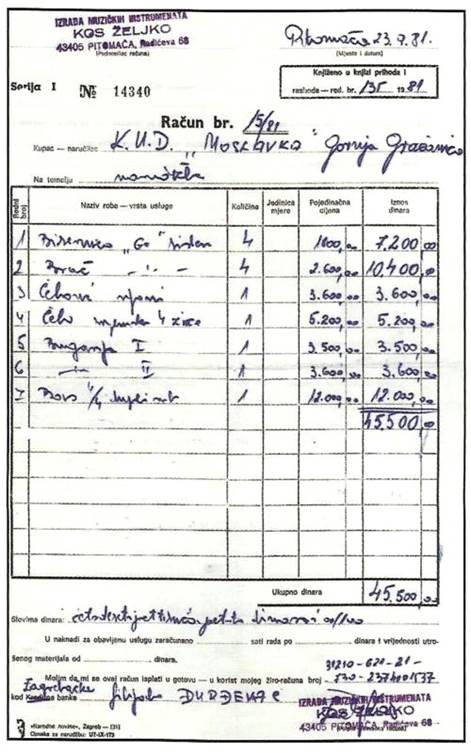 IZRADA MUZIČKIH INSTRUMENATA
KOS ŽELJKO
43405 PITOMAČA, Radićeva 68
(Podnosilac računa)
Pitomača 23.9.81.
(Mjesto i datum)
Serija I № 14340
Knjiženo u knjizi prihoda i
rashoda — red. br. 135 1981
Račun br. 15/81
Kupac — naručilac K.U.D. „Moslavka" Gornja Gračenica
Na temelju narudžbe
Redni broj Naziv robe — vrsta usluge Količina Jedinica mjere Pojedinačna cijena Iznos dinara
1 Bisernica „G" sistem 4 1800,00 7.200,00
2 Brač -"- 4 2.600,00 10.400,00
3 Čelović 1 3.600,00 3.600,00
4 Čelo 4 žice 1 5.200,00 5.200,00
5 Bugarija I 1 3.500,00 3.500,00
6 -"- II 1 3.600,00 3.600,00
7 1 12.000,00 12.000,00
45.500,00
Ukupno dinara 45.500,00
Slovima dinara: četrdesetpettisućapetsto dinara i 00/100
U naknadi za obavljenu uslugu zaračunano sati rada po dinara i vrijednosti utro-
šenog materijala od dinara.
31210-621-21-
Molim da mi se ovaj račun isplati u gotovu — u korist mojeg žiro-računa broj
kod Zagrebačke banke filijala ĐURĐEVAC
IZRADA MUZIČKIH INSTRUMENATA
KOS ŽELJKO
43405 PITOMAČA, Radićeva 68
«Narodne novine», Zagreb — (31)
Oznaka za narudžbu: UT-IX-173